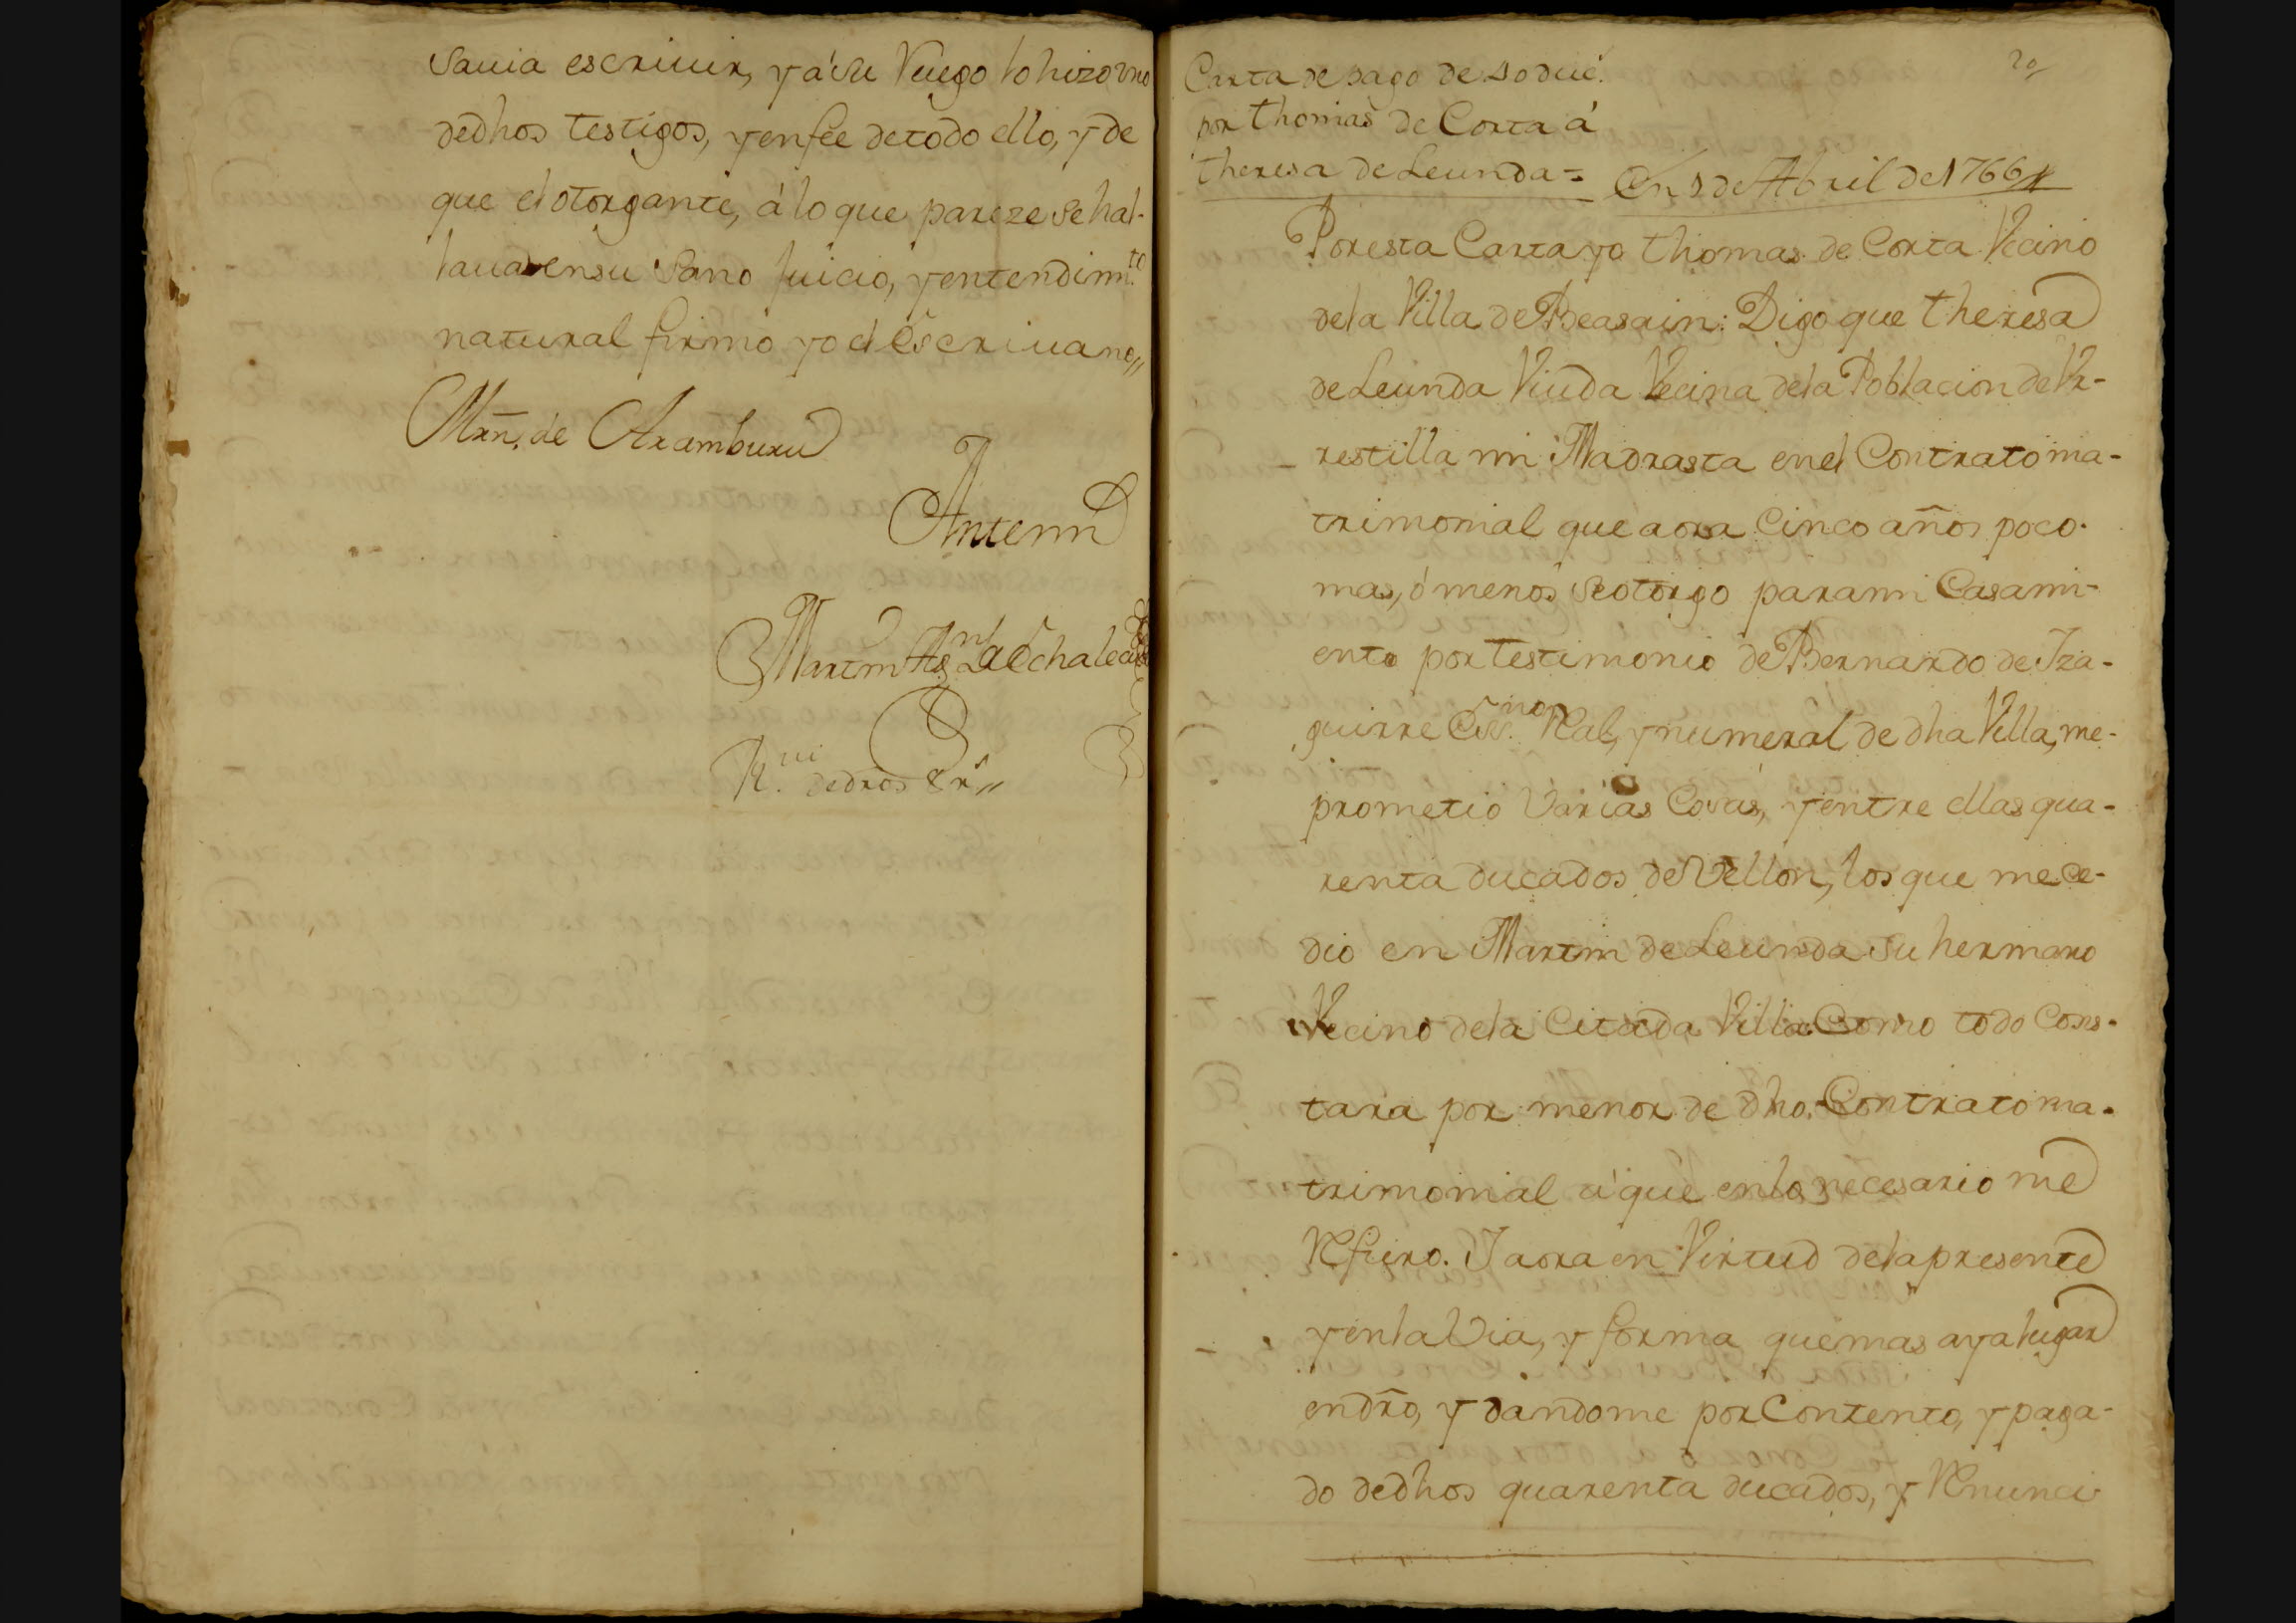 Sauia escriuir, y á su Ruego lo hizo vno
de dhos testigos, y en fee de todo ello, y de
que el otorgante, á lo que pareze se hal-
laua en su sano Juicio, y entendim.to
natural firmo yo el Escriuano,,
Mrn. de Aramburu
Antemi
Martin Ag.n La Echalecu
R.vi
20
Carta de pago de 40 duc.
por thomas de Corta á
theresa de Leunda =
En 9 de Abril de 1766
Por esta Carta yo thomas de Corta Vecino
de la Villa de Beasain: Digo que theresa
de Leunda Viuda Vecina de la Poblacion de Vr-
restilla mi Madrasta en el Contrato ma-
trimonial que aora Cinco años poco
mas, ó menos se otorgo para mi Casami-
ento por testimonio de Bernardo de Yza-
guirre Ess.no Real, y numeral de dha Villa, me
prometio Varias Cosas, y entre ellas qua-
renta ducados de Vellon, los que me ce-
dio en Martin de Leunda su hermano
Vecino de la Citada Villa Como todo Cons-
tara por menor de dho. Contrato ma-
trimonial á que en lo necesario me
Refiero. Y aora en Virtud de la presente
y en la Via, y forma que mas aya lugar
en dro, y dandome por Contento, y paga-
do de dhos quarenta ducados, y Renunci